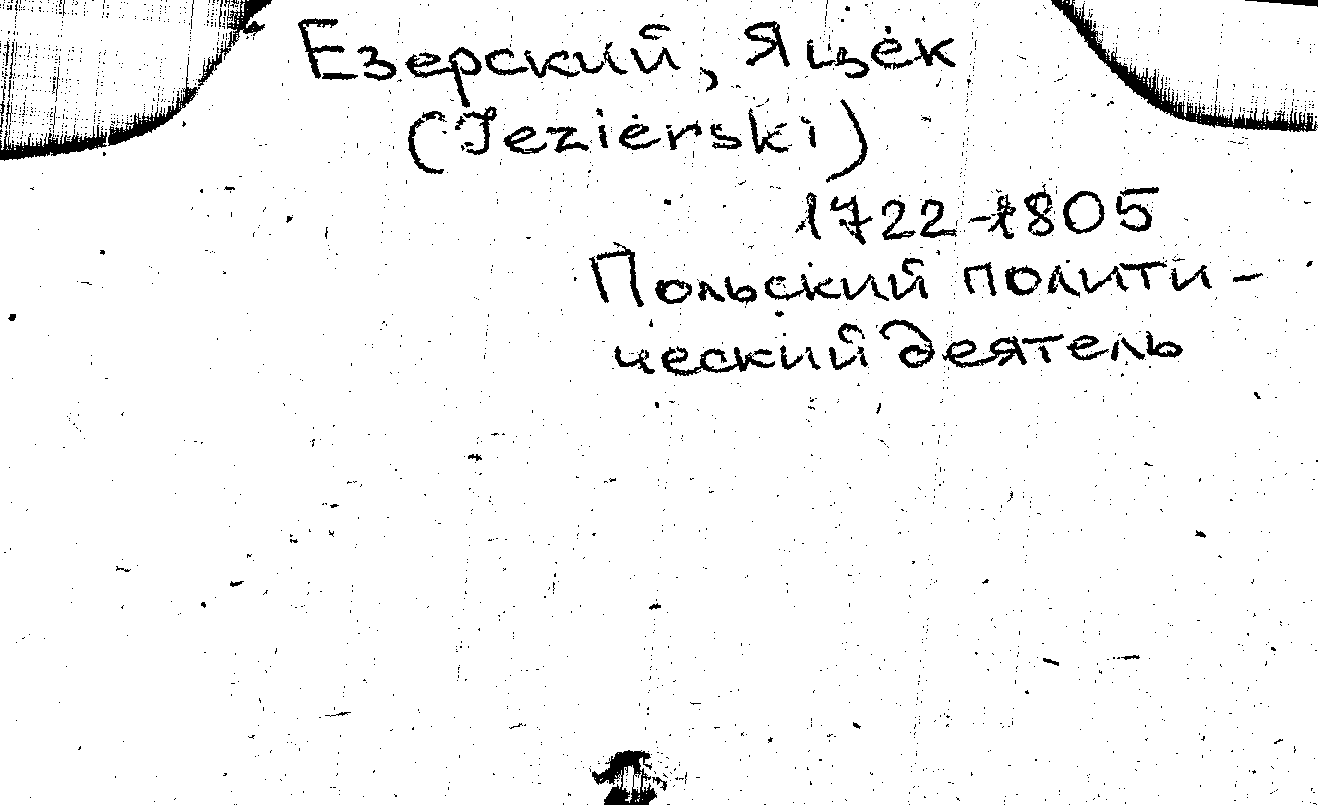 Езерский, Яцек
(Jezierski)
1722-1805
Польский полити-
ческий деятель